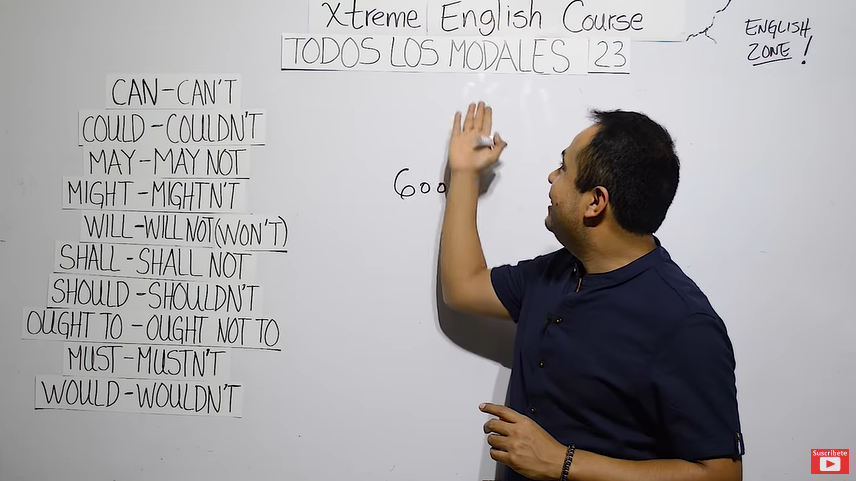 Xtreme English Course
TODOS LOS MODALES 23
ENGLISH
ZONE!
CAN-CAN'T
COULD-COULDN'T
MAY-MAY NOT
MIGHT-MIGHTN'T
WILL-WILL NOT(WON'T)
SHALL-SHALL NOT
SHOULD-SHOULDN'T
OUGHT TO-OUGHT NOT TO
MUST-MUSTN'T
WOULD-WOULDN'T
600
Suscríbete